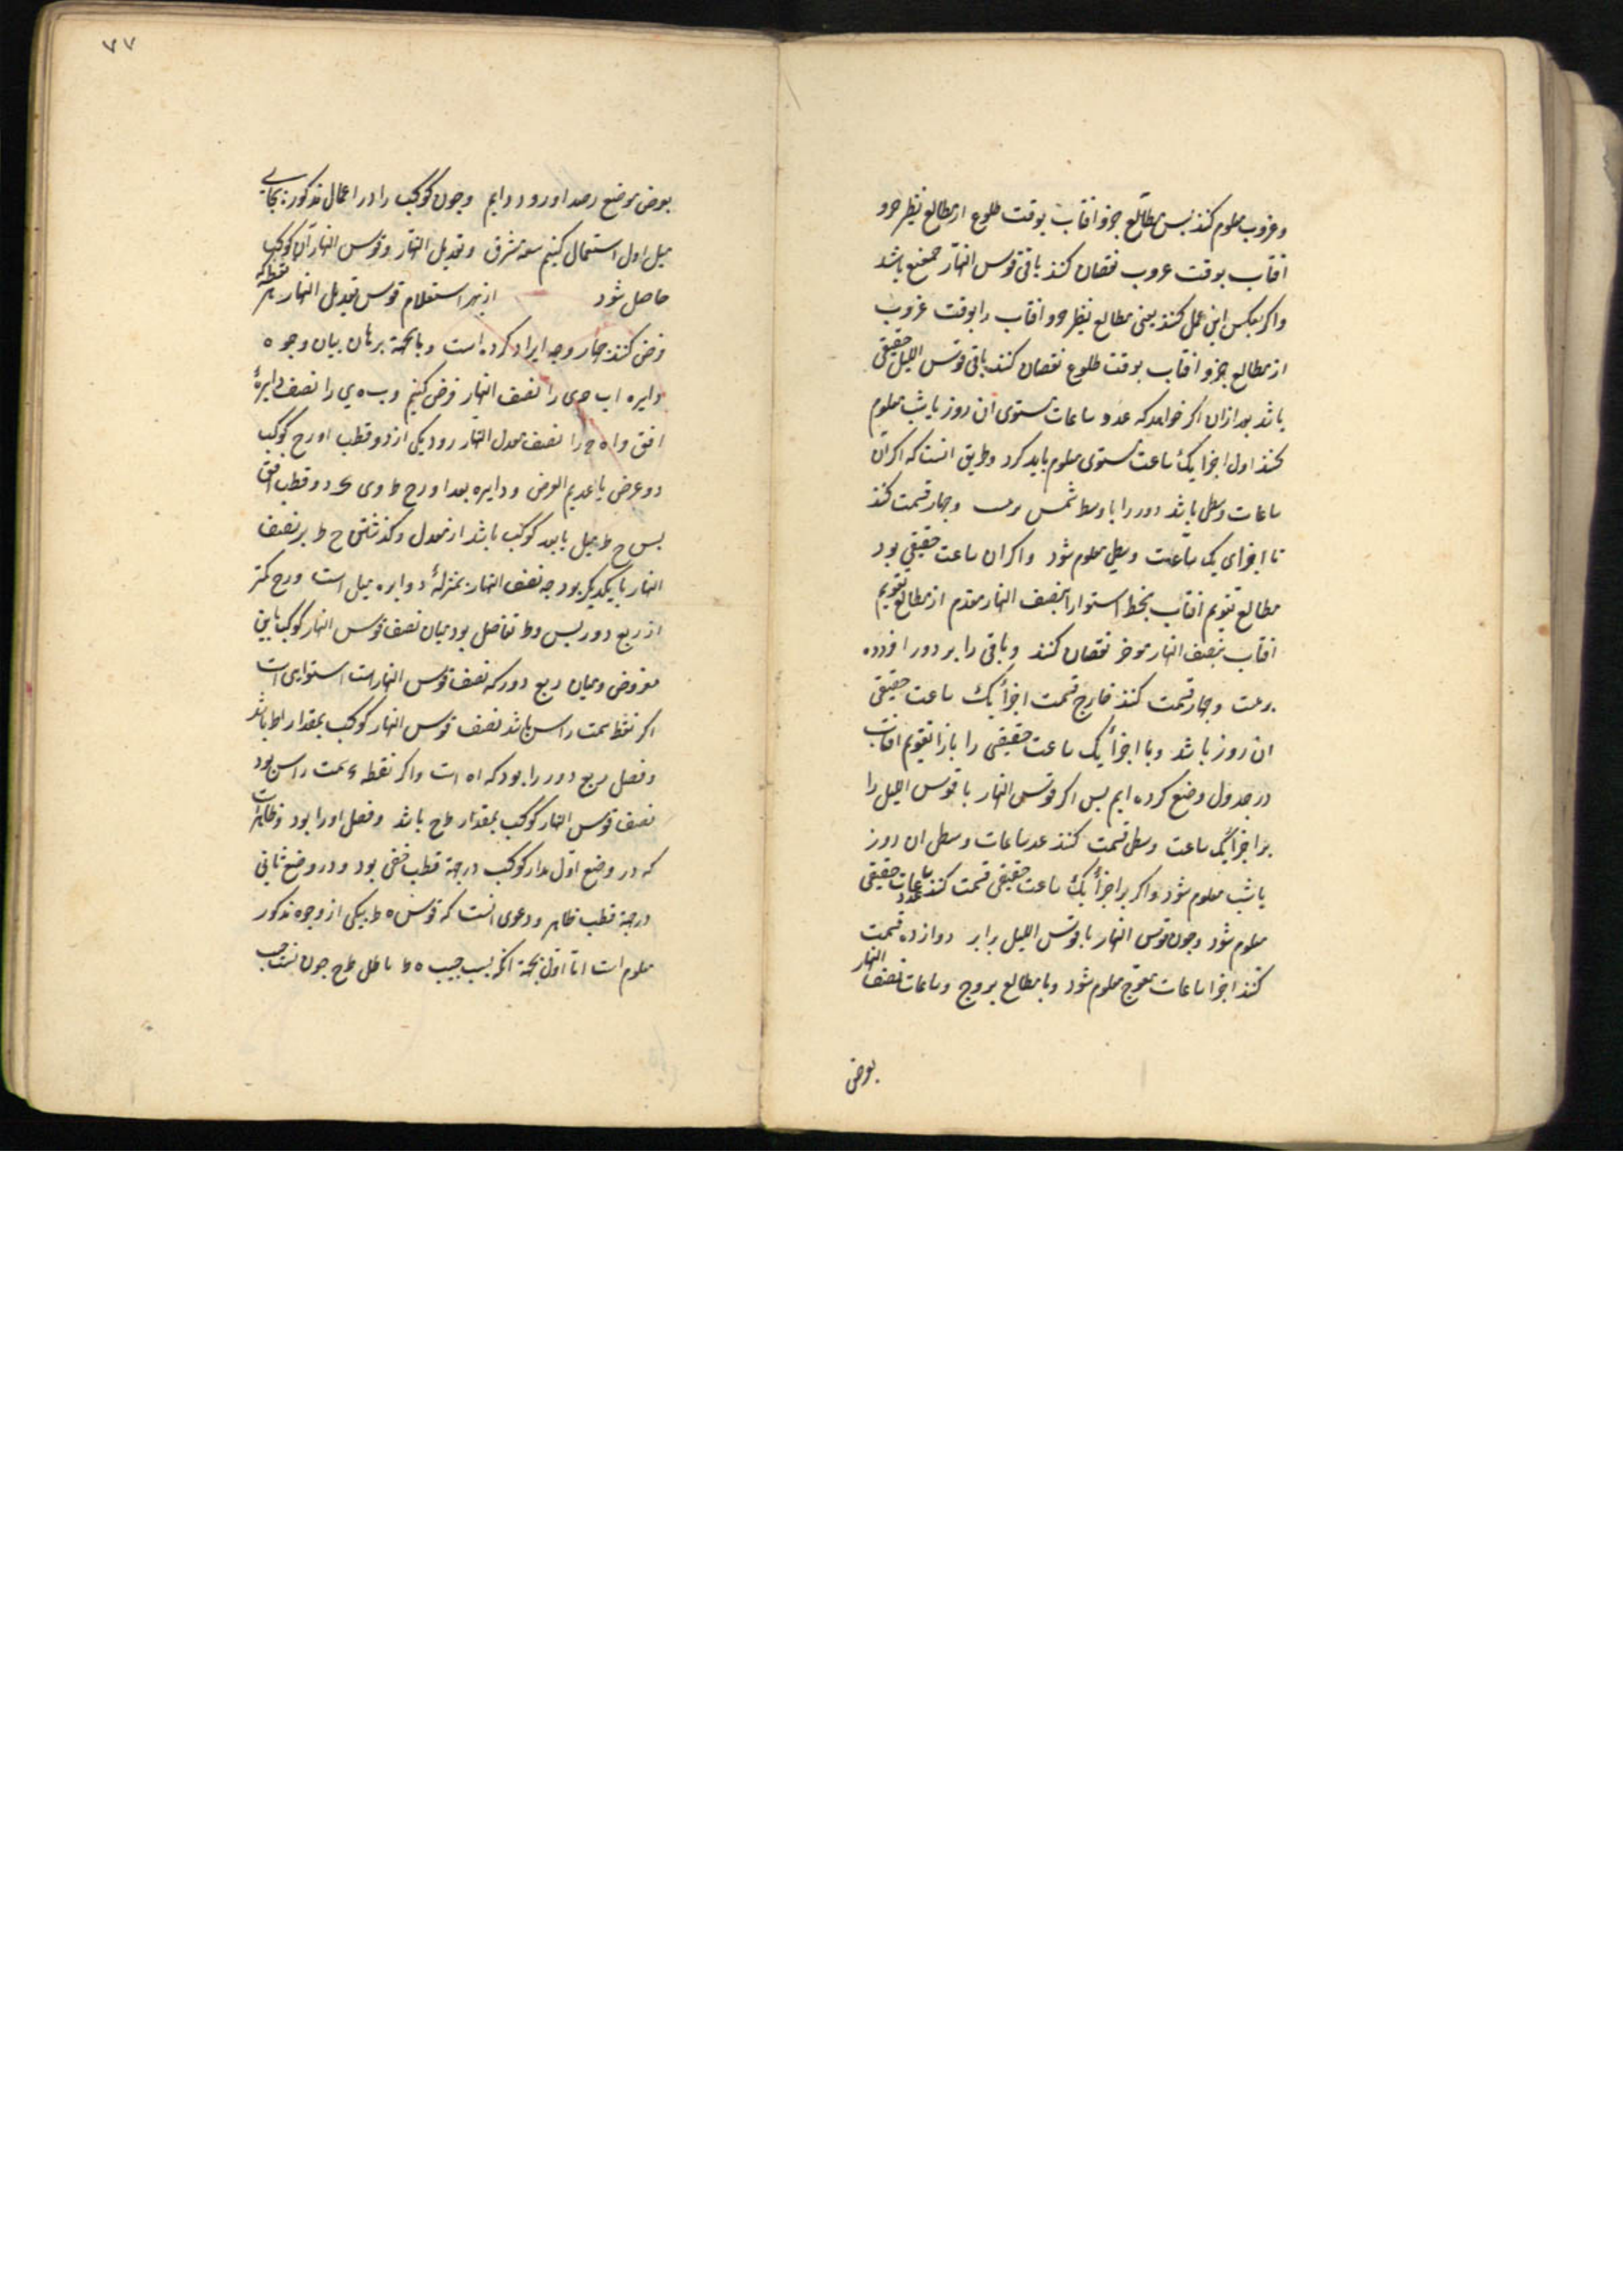 وغروب معلوم کنند بس مطالع جزو افتاب بوقت طلوع از مطالع نظیر جزو
افتاب بوقت غروب نقصان کنند باقی قوس النهار حقیقی باشد
واکر بعکس این عمل کنند یعنی مطالع نظیر جزو افتاب را بوقت غروب
از مطالع جزو افتاب بوقت طلوع نقصان کنند باقی قوس اللیل حقیقی
باشد بعد ازان اکر خواهد که عدد ساعات مستوی ان روز یا شب معلوم
کنند اول اجزا یک ساعت مستوی معلوم باید کرد وطریق انست که اکر ان
ساعات وسطی باشد دور را با وسط شمس بر بیست وجهار قسمت کنند
تا اجزای یک ساعت وسطی معلوم شود واکر ان ساعت حقیقی بود
مطالع تقویم افتاب بخط استوا را بنصف النهار مقدم از مطالع تقویم
افتاب بنصف النهار موخر نقصان کنند وباقی را بر دور افزوده
بر بیست وجهار قسمت کنند خارج قسمت اجزأ یک ساعت حقیقی
ان روز باشد وما اجزأ یک ساعت حقیقی را بازا تقویم افتاب
در جدول وضع کرده ایم بس اکر قوس النهار یا قوس اللیل را
بر اجزأ یک ساعت وسطی قسمت کنند عدد ساعات وسطی ان روز
یا شب معلوم شود واکر بر اجزأ یک ساعت حقیقی قسمت کنند عدد ساعات حقیقی
معلوم شود وجون قوس النهار یا قوس اللیل را بر دوازده قسمت
کنند اجزا ساعات معوج معلوم شود وما مطالع بروج وساعات نصف النهار
بعرض
۷۷
بعرض موضع رصد اورده ایم وجون کوکب را در اعمال مذکور بجای
میل اول استعمال کنیم سعة مشرق وتعدیل النهار وقوس النهار ان کوکب
حاصل شود از بهر استعلام قوس تعدیل النهار هر نقطه که
فرض کنند جهار وجه ایراد کرده است وبجهة برهان بیان وجوه
دایره اب ج ی را نصف النهار فرض کنیم وب ه ی را نصف دایرهٔ
افق وا ه ج را نصف معدل النهار ور د یکی از دو قطب او وح کوکب
ذو عرض یا عدیم العرض ودایره بعد او رح ط وی ک دو قطب افق
بس ح ط میل یا بعد کوکب باشد از معدل وکذشتن ح ط بر نصف
النهار با یکدیکر بود جه نصف النهار بمنزلهٔ دوایره میل است ورح کمتر
از ربع دور بس وط تفاضل بود میان نصف قوس النهار کوکب بافق
مفروض ومیان ربع دور که نصف قوس النهار است استوایی است
اکر نقطه سمت راس باشد نصف قوس النهار کوکب بمقدار اط باشد
وفصل ربع دور را بود که اه است واکر نقطه ء سمت راس بود
نصف قوس النهار کوکب بمقدار طج باشد وفصل اورا بود وظاهر است
که در وضع اول مدار کوکب در جهة قطب خفی بود ودر وضع ثانی
در جهة قطب ظاهر ودعوی انست که قوس ه ط بیکی از وجوه مذکور
معلوم است اما اول بجهة انکه نسبت جیب ه ط با ظل طح جون نسبت جیب